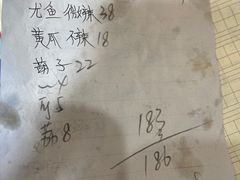 尤鱼 微辣 38
黄瓜 不辣 18
茄子 22
5
荔 8
183
3
186